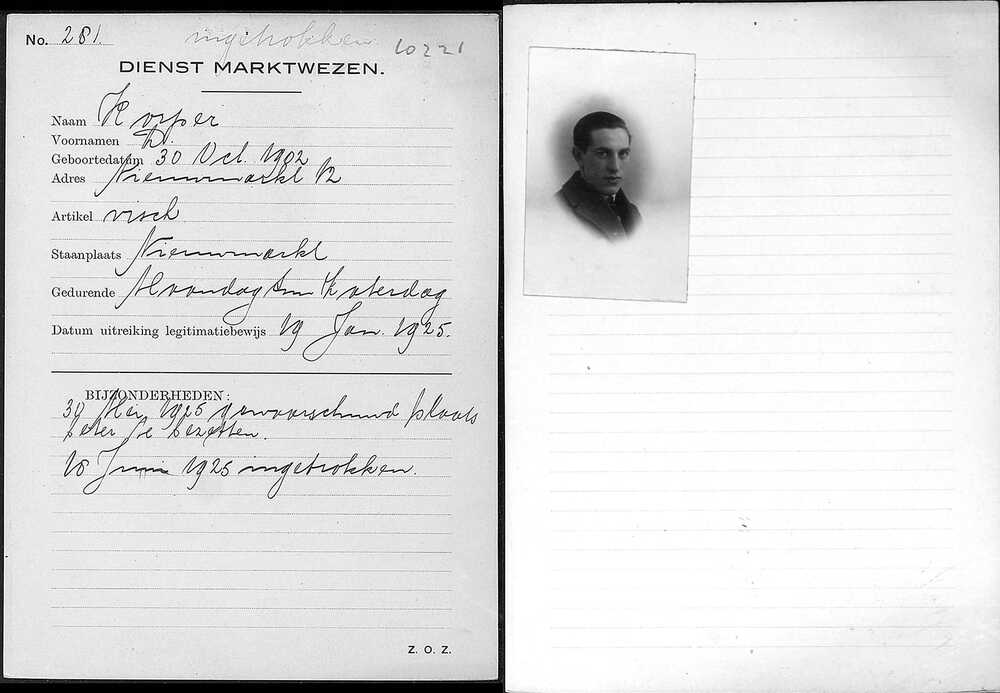 No. 281. ingetrokken 10221
DIENST MARKTWEZEN.
Naam Kuiper
Voornamen D.
Geboortedatum 30 Oct. 1902
Adres Nieuwmarkt 12
Artikel visch
Staanplaats Nieuwmarkt
Gedurende Maandag t/m Zaterdag
Datum uitreiking legitimatiebewijs 19 Jan. 1925.
BIJZONDERHEDEN:
30 Mei 1925 gewaarschuwd plaats
beter te bezetten.
16 Juni 1925 ingetrokken.
Z. O. Z.